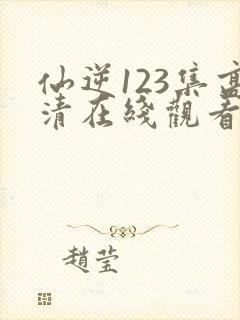 仙逆123集高
清在綫觀看
趙莹